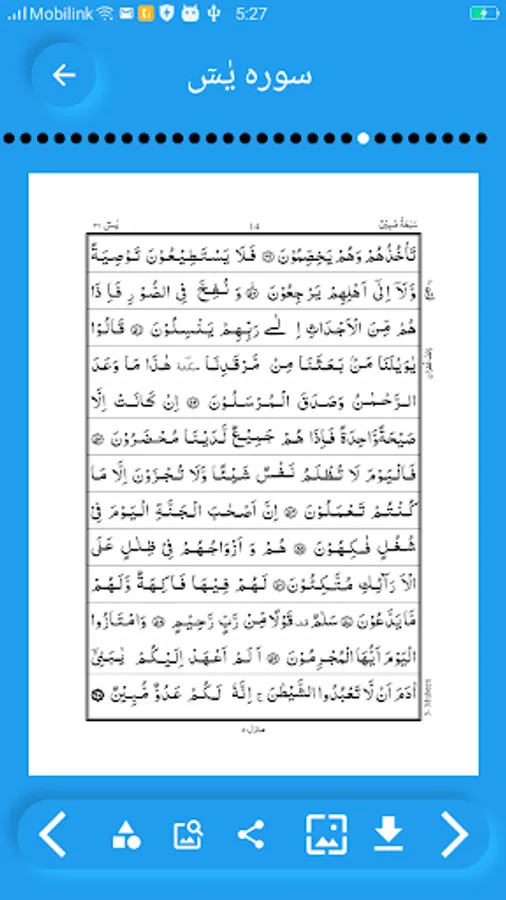 Mobilink 5:27
سورہ یٰسٓ
یٰسٓ ٣٦ 14 سَبْعَةُ مُبِيْنٌ
تَاْخُذُهُمْ وَهُمْ يَخِصِّمُوْنَ ۝ فَلَا يَسْتَطِيْعُوْنَ تَوْصِيَةً
وَّلَاۤ اِلٰۤى اَهْلِهِمْ يَرْجِعُوْنَ ۝ وَ نُفِخَ فِى الصُّوْرِ فَاِذَا
هُمْ مِّنَ الْاَجْدَاثِ اِلٰى رَبِّهِمْ يَنْسِلُوْنَ ۝ قَالُوْا
يٰوَيْلَنَا مَنْۢ بَعَثَنَا مِنْ مَّرْقَدِنَا ۘ سكتة هٰذَا مَا وَعَدَ
الرَّحْمٰنُ وَصَدَقَ الْمُرْسَلُوْنَ ۝ اِنْ كَانَتْ اِلَّا
صَيْحَةً وَّاحِدَةً فَاِذَا هُمْ جَمِيْعٌ لَّدَيْنَا مُحْضَرُوْنَ ۝
فَالْيَوْمَ لَا تُظْلَمُ نَفْسٌ شَيْئًا وَّلَا تُجْزَوْنَ اِلَّا مَا
كُنْتُمْ تَعْمَلُوْنَ ۝ اِنَّ اَصْحٰبَ الْجَنَّةِ الْيَوْمَ فِىْ
شُغُلٍ فٰكِهُوْنَ ۝ هُمْ وَ اَزْوَاجُهُمْ فِىْ ظِلٰلٍ عَلَى
الْاَرَآئِكِ مُتَّكِـُٔوْنَ ۝ لَهُمْ فِيْهَا فَاكِهَةٌ وَّلَهُمْ
مَّا يَدَّعُوْنَ ۝ سَلٰمٌ قف قَوْلًا مِّنْ رَّبٍّ رَّحِيْمٍ ۝ وَامْتَازُوا
الْيَوْمَ اَيُّهَا الْمُجْرِمُوْنَ ۝ اَلَمْ اَعْهَدْ اِلَيْكُمْ يٰبَنِىْۤ
اٰدَمَ اَنْ لَّا تَعْبُدُوا الشَّيْطٰنَ ۚ اِنَّهٗ لَكُمْ عَدُوٌّ مُّبِيْنٌ ۝
منزل ٥